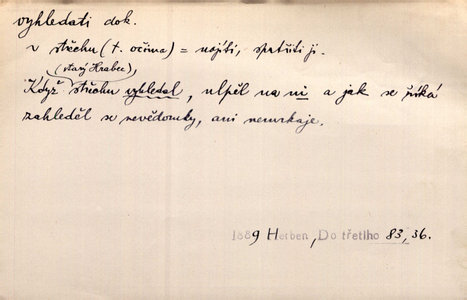 vyhledati dok.
v střechu (t. očima) = najíti, spatřiti ji.
(starý Hrabec)
Když střechu vyhledal, ulpěl na ní a jak se říká
zahleděl se nevědomky, ani nemrkaje.
1889 Herben, Do třetího 83, 36.